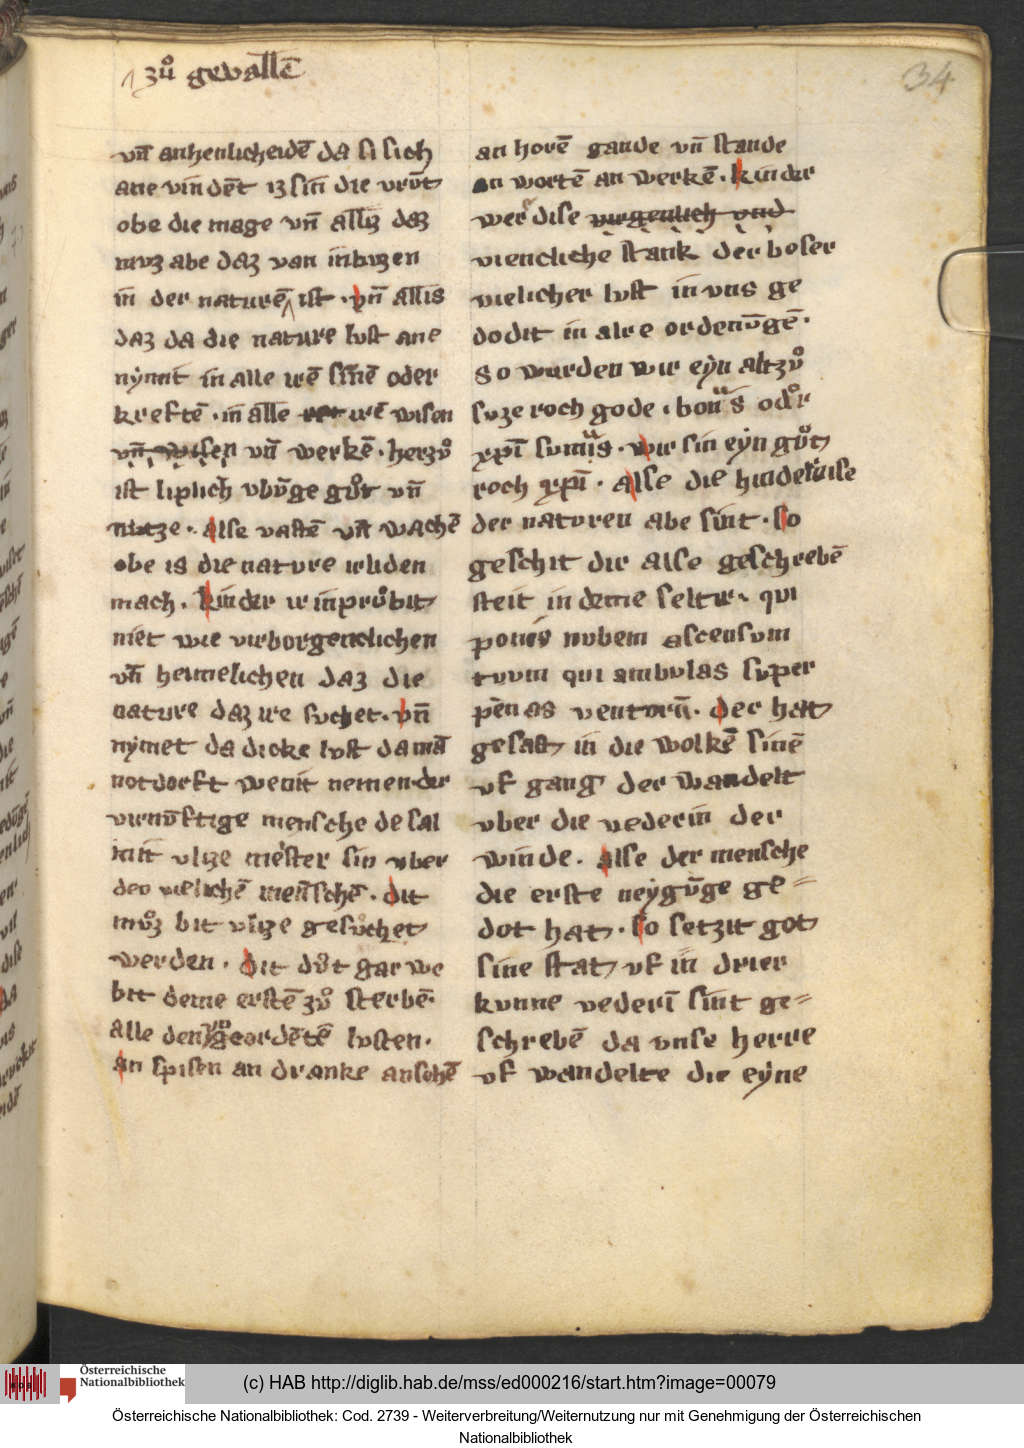 zuͦ gevallē
34
vn̄ anhenlicheidē da si sich
ane vindēt iz sin die vrūt
obe die mage vn̄ alliz daz
muz abe daz van inbizen
in der naturē ist · vn̄ allis
daz da die nature lust ane
nẏmit in alle irē sinē oder
kreftē · in alle irē wison
vn̄ wisen vn̄ werkē · herzuͦ
ist liplich vbūge guͦt vn̄
nutze · alse vastē vn̄ wachē
obe is die nature irliden
mach · kinder ir inpruͦbit
niet wie virborgenclichen
vn̄ heimelichen daz die
nature daz ire suchet · vn̄
nẏmet da dicke lust da mā
notdorft wenit nemen · der
virnūftige mensche de sal
mit vlize mester sin vber
den vielichē menschē · dit
muͦz bit vlize gesuͦchet
werden · dit duͦt gar we
bit deme erstē zuͦ sterbē
alle den geordētē lusten ·
an spisen an dranke ansehē
an horē gande vn̄ stande
an wortē an werkē · kinder
wer dise virgenlich vnd
vienclichē stank der boser
vielicher lust in vns ge
dodit in alre ordenūgē ·
so wurden wir eẏn altzuͦ
suze roch gode · bonus odor
xp̄i sumus · wir sin eẏn guͦt
roch xp̄i · Alse die hindernise
der naturen abe sint · so
geschit dir alse geschrebē
steit in deme seltir · qui
ponis nubem ascensum
tuum qui ambulas super
pēnas ventorū · der hat
gesast in die wolkē sinē
vf gang der wandelt
vber die vederin der
winde · alse der mensche
die erste neẏgūge ge=
dot hat · so setzit got
sine stat vf in drier
kunne vederī sint ge=
schrebē da vnse herre
vf wandelte die eẏne
Österreichische
Nationalbibliothek
(c) HAB http://diglib.hab.de/mss/ed000216/start.htm?image=00079
Österreichische Nationalbibliothek: Cod. 2739 - Weiterverbreitung/Weiternutzung nur mit Genehmigung der Österreichischen
Nationalbibliothek